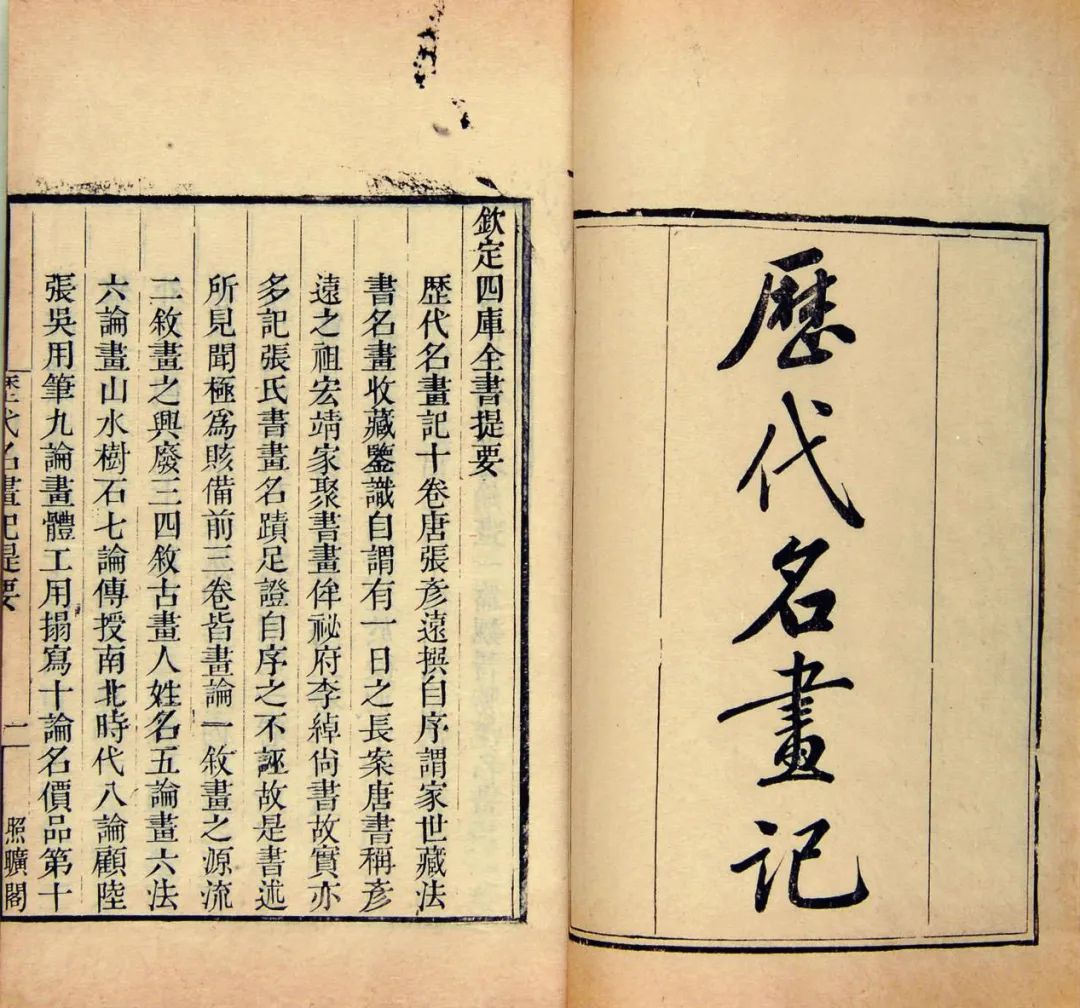 歷代名畫記
欽定四庫全書提要
歷代名畫記十卷唐張彥遠撰自序謂家世藏法
書名畫收藏鑒識自謂有一日之長案唐書稱彥
遠之祖宏靖家聚書畫侔祕府李綽尙書故實亦
多記張氏書畫名蹟足證自序之不誣故是書述
所見聞極爲賅備前三卷皆畫論一敘畫之源流
二敘畫之興廢三四敘古畫人姓名五論畫六法
六論畫山水樹石七論傳授南北時代八論顧陸
張吳用筆九論畫體工用搨寫十論名價品第十
歷代名畫記提要
一
照曠閣